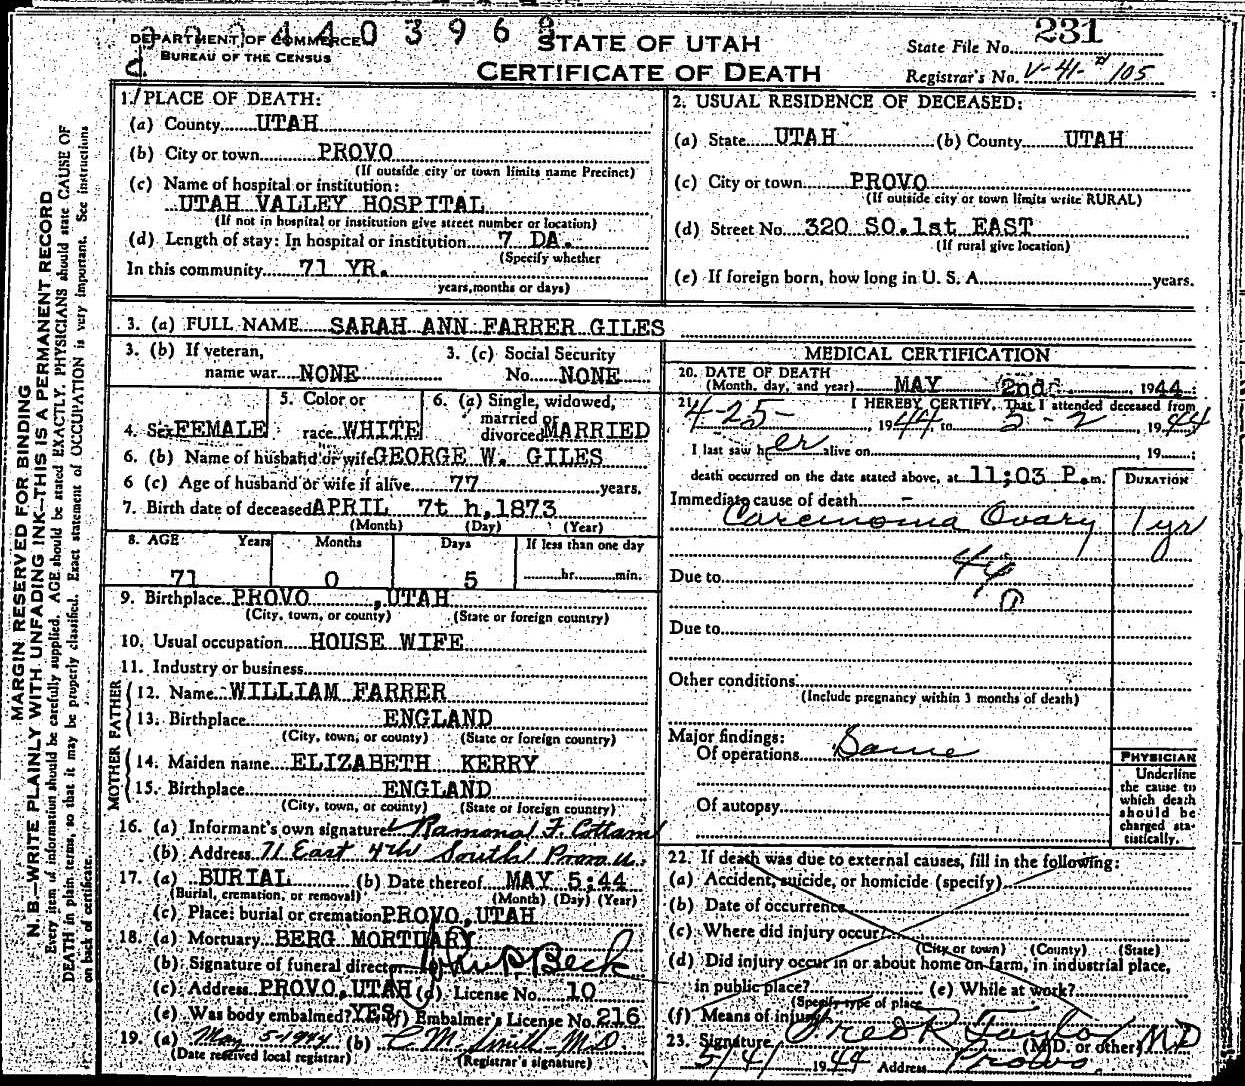 0 0 0 4 4 0 3 9 6 9
DEPARTMENT OF COMMERCE
BUREAU OF THE CENSUS
STATE OF UTAH
CERTIFICATE OF DEATH
State File No. 231
Registrar's No. V-41-#105
MARGIN RESERVED FOR BINDING
N. B.—WRITE PLAINLY WITH UNFADING INK—THIS IS A PERMANENT RECORD
Every item of information should be carefully supplied. AGE should be stated EXACTLY. PHYSICIANS should state CAUSE OF
DEATH in plain terms, so that it may be properly classified. Exact statement of OCCUPATION is very important. See instructions
on back of certificate.
1. PLACE OF DEATH:
(a) County UTAH
(b) City or town PROVO
(If outside city or town limits name Precinct)
(c) Name of hospital or institution:
UTAH VALLEY HOSPITAL
(If not in hospital or institution give street number or location)
(d) Length of stay: In hospital or institution 7 DA.
(Specify whether
In this community 71 YR.
years, months or days)
2. USUAL RESIDENCE OF DECEASED:
(a) State UTAH (b) County UTAH
(c) City or town PROVO
(If outside city or town limits write RURAL)
(d) Street No. 320 SO. 1st EAST
(If rural give location)
(e) If foreign born, how long in U. S. A. years.
3. (a) FULL NAME SARAH ANN FARRER GILES
3. (b) If veteran,
name war NONE
3. (c) Social Security
No. NONE
4. Sex FEMALE
5. Color or
race WHITE
6. (a) Single, widowed,
married or
divorced MARRIED
6. (b) Name of husband or wife GEORGE W. GILES
6 (c) Age of husband or wife if alive 77 years.
7. Birth date of deceased APRIL 7t h, 1873
(Month) (Day) (Year)
8. AGE Years Months Days If less than one day
71 0 5 hr. min.
9. Birthplace PROVO , UTAH
(City, town, or county) (State or foreign country)
10. Usual occupation HOUSE WIFE
11. Industry or business
FATHER
12. Name WILLIAM FARRER
13. Birthplace ENGLAND
(City, town, or county) (State or foreign country)
MOTHER
14. Maiden name ELIZABETH KERRY
15. Birthplace ENGLAND
(City, town, or county) (State or foreign country)
16. (a) Informant's own signature Ramona F. Cottam
(b) Address 71 East 4th South Provo U.
17. (a) BURIAL (b) Date thereof MAY 5:44
(Burial, cremation, or removal) (Month) (Day) (Year)
(c) Place: burial or cremation PROVO, UTAH
18. (a) Mortuary BERG MORTUARY
(b) Signature of funeral director Beck
(c) Address PROVO, UTAH (d) License No. 10
(e) Was body embalmed? YES (f) Embalmer's License No. 216
19. (a) May 5-1944 (b) C. M. Smith-MD
(Date received local registrar) (Registrar's signature)
MEDICAL CERTIFICATION
20. DATE OF DEATH
(Month, day, and year) MAY 2nd 1944
21. I HEREBY CERTIFY, That I attended deceased from
4-25- 1944 to 5-2 1944
I last saw her alive on 19
death occurred on the date stated above, at 11;03 P. m.
DURATION
Immediate cause of death
Carcinoma Ovary 1 yr
Due to
Due to
Other conditions
(Include pregnancy within 3 months of death)
Major findings:
Of operations Same
Of autopsy
PHYSICIAN
Underline
the cause to
which death
should be
charged sta-
tistically.
22. If death was due to external causes, fill in the following:
(a) Accident, suicide, or homicide (specify)
(b) Date of occurrence
(c) Where did injury occur?
(City or town) (County) (State)
(d) Did injury occur in or about home on farm, in industrial place,
in public place? (e) While at work?
(Specify type of place
(f) Means of injury
23. Signature Fred R Taylor MD
(M.D. or other)
5/4/ 1944 Address Provo.